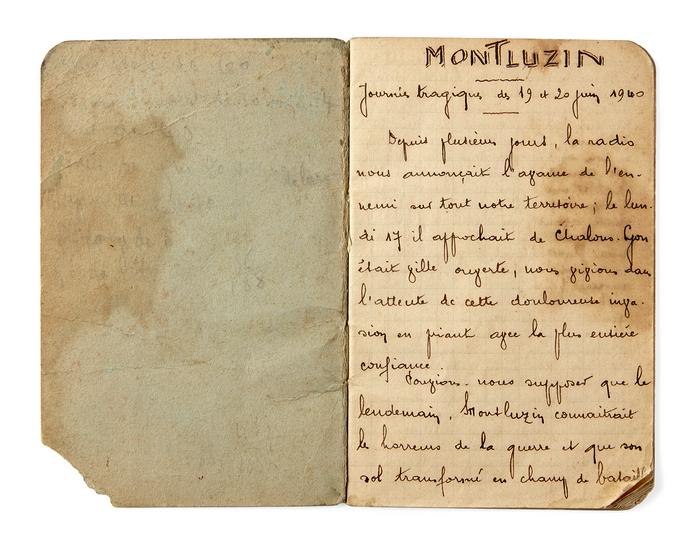 MONTLUZIN
Journées tragiques des 19 et 20 juin 1940
Depuis plusieurs jours, la radio
nous annonçait l'avance de l'en-
nemi sur tout notre territoire ; le lun-
di 17 il approchait de Chalons. Lyon
était ville ouverte, nous vivions dans
l'attente de cette douloureuse inva-
sion en priant avec la plus entière
confiance.
Pouvions-nous supposer que le
lendemain, Montluzin connaitrait
le horreurs de la guerre et que son
sol transformé en champ de bataille